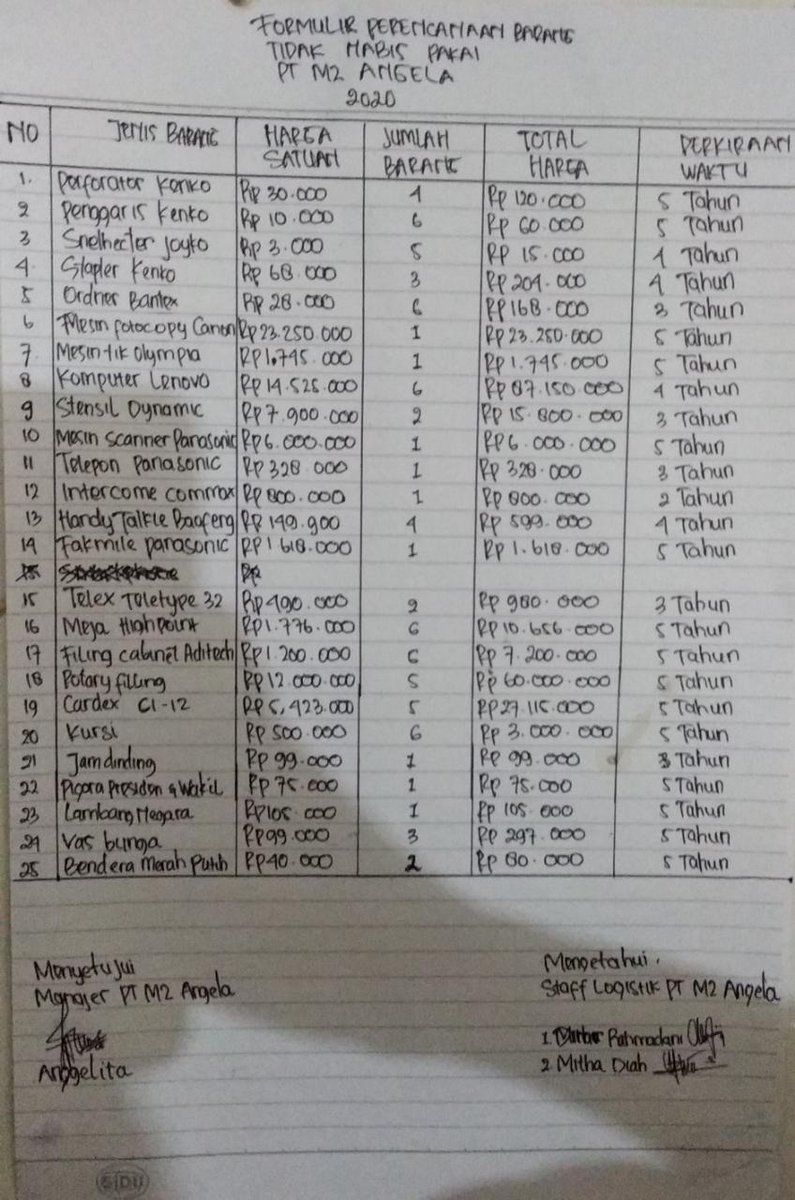 FORMULIR PERENCANAAN BARANG
TIDAK HABIS PAKAI
PT M2 ANGELA
2020
NO JENIS BARANG HARGA SATUAN JUMLAH BARANG TOTAL HARGA PERKIRAAN WAKTU
1. Perforator Kenko Rp 30.000 4 Rp 120.000 5 Tahun
2 Penggaris Kenko Rp 10.000 6 Rp 60.000 5 Tahun
3 Snelhecter Joyko Rp 3.000 5 Rp 15.000 4 Tahun
4. Stapler Kenko Rp 68.000 3 Rp 204.000 4 Tahun
5 Ordner Bantex Rp 28.000 6 Rp 168.000 3 Tahun
6 Mesin fotocopy Canon Rp 23.250.000 1 Rp 23.250.000 5 Tahun
7 Mesin tik Olympia Rp 1.745.000 1 Rp 1.745.000 5 Tahun
8 Komputer Lenovo Rp 14.525.000 6 Rp 87.150.000 4 Tahun
9 Stensil Dynamic Rp 7.900.000 2 Rp 15.800.000 3 Tahun
10 Mesin scanner Panasonic Rp 6.000.000 1 Rp 6.000.000 5 Tahun
11 Telepon Panasonic Rp 328.000 1 Rp 328.000 3 Tahun
12 Intercome commax Rp 800.000 1 Rp 800.000 2 Tahun
13 Handy Talkie Baofeng Rp 149.900 4 Rp 599.000 4 Tahun
14 Fakmile panasonic Rp 1.618.000 1 Rp 1.618.000 5 Tahun
15 Rp
15 Telex Teletype 32 Rp 490.000 2 Rp 980.000 3 Tahun
16 Meja High point Rp 1.776.000 6 Rp 10.656.000 5 Tahun
17 Filing cabinet Aditech Rp 1.200.000 6 Rp 7.200.000 5 Tahun
18 Rotary filling Rp 12.000.000 5 Rp 60.000.000 5 Tahun
19 Cardex C1-12 Rp 5,423.000 5 Rp 27.115.000 5 Tahun
20 Kursi Rp 500.000 6 Rp 3.000.000 5 Tahun
21 Jam dinding Rp 99.000 1 Rp 99.000 3 Tahun
22 Pigora Presiden & Wakil Rp 75.000 1 Rp 75.000 5 Tahun
23 Lambang Negara Rp 105.000 1 Rp 105.000 5 Tahun
24 Vas bunga Rp 99.000 3 Rp 297.000 5 Tahun
25 Bendera Merah Putih Rp 40.000 2 Rp 80.000 5 Tahun
Menyetujui
Manajer PT M2 Angela
Anggelita
Mengetahui.
Staff Logistik PT M2 Angela
1. Rahmadani
2. Mitha Diah
SIDU